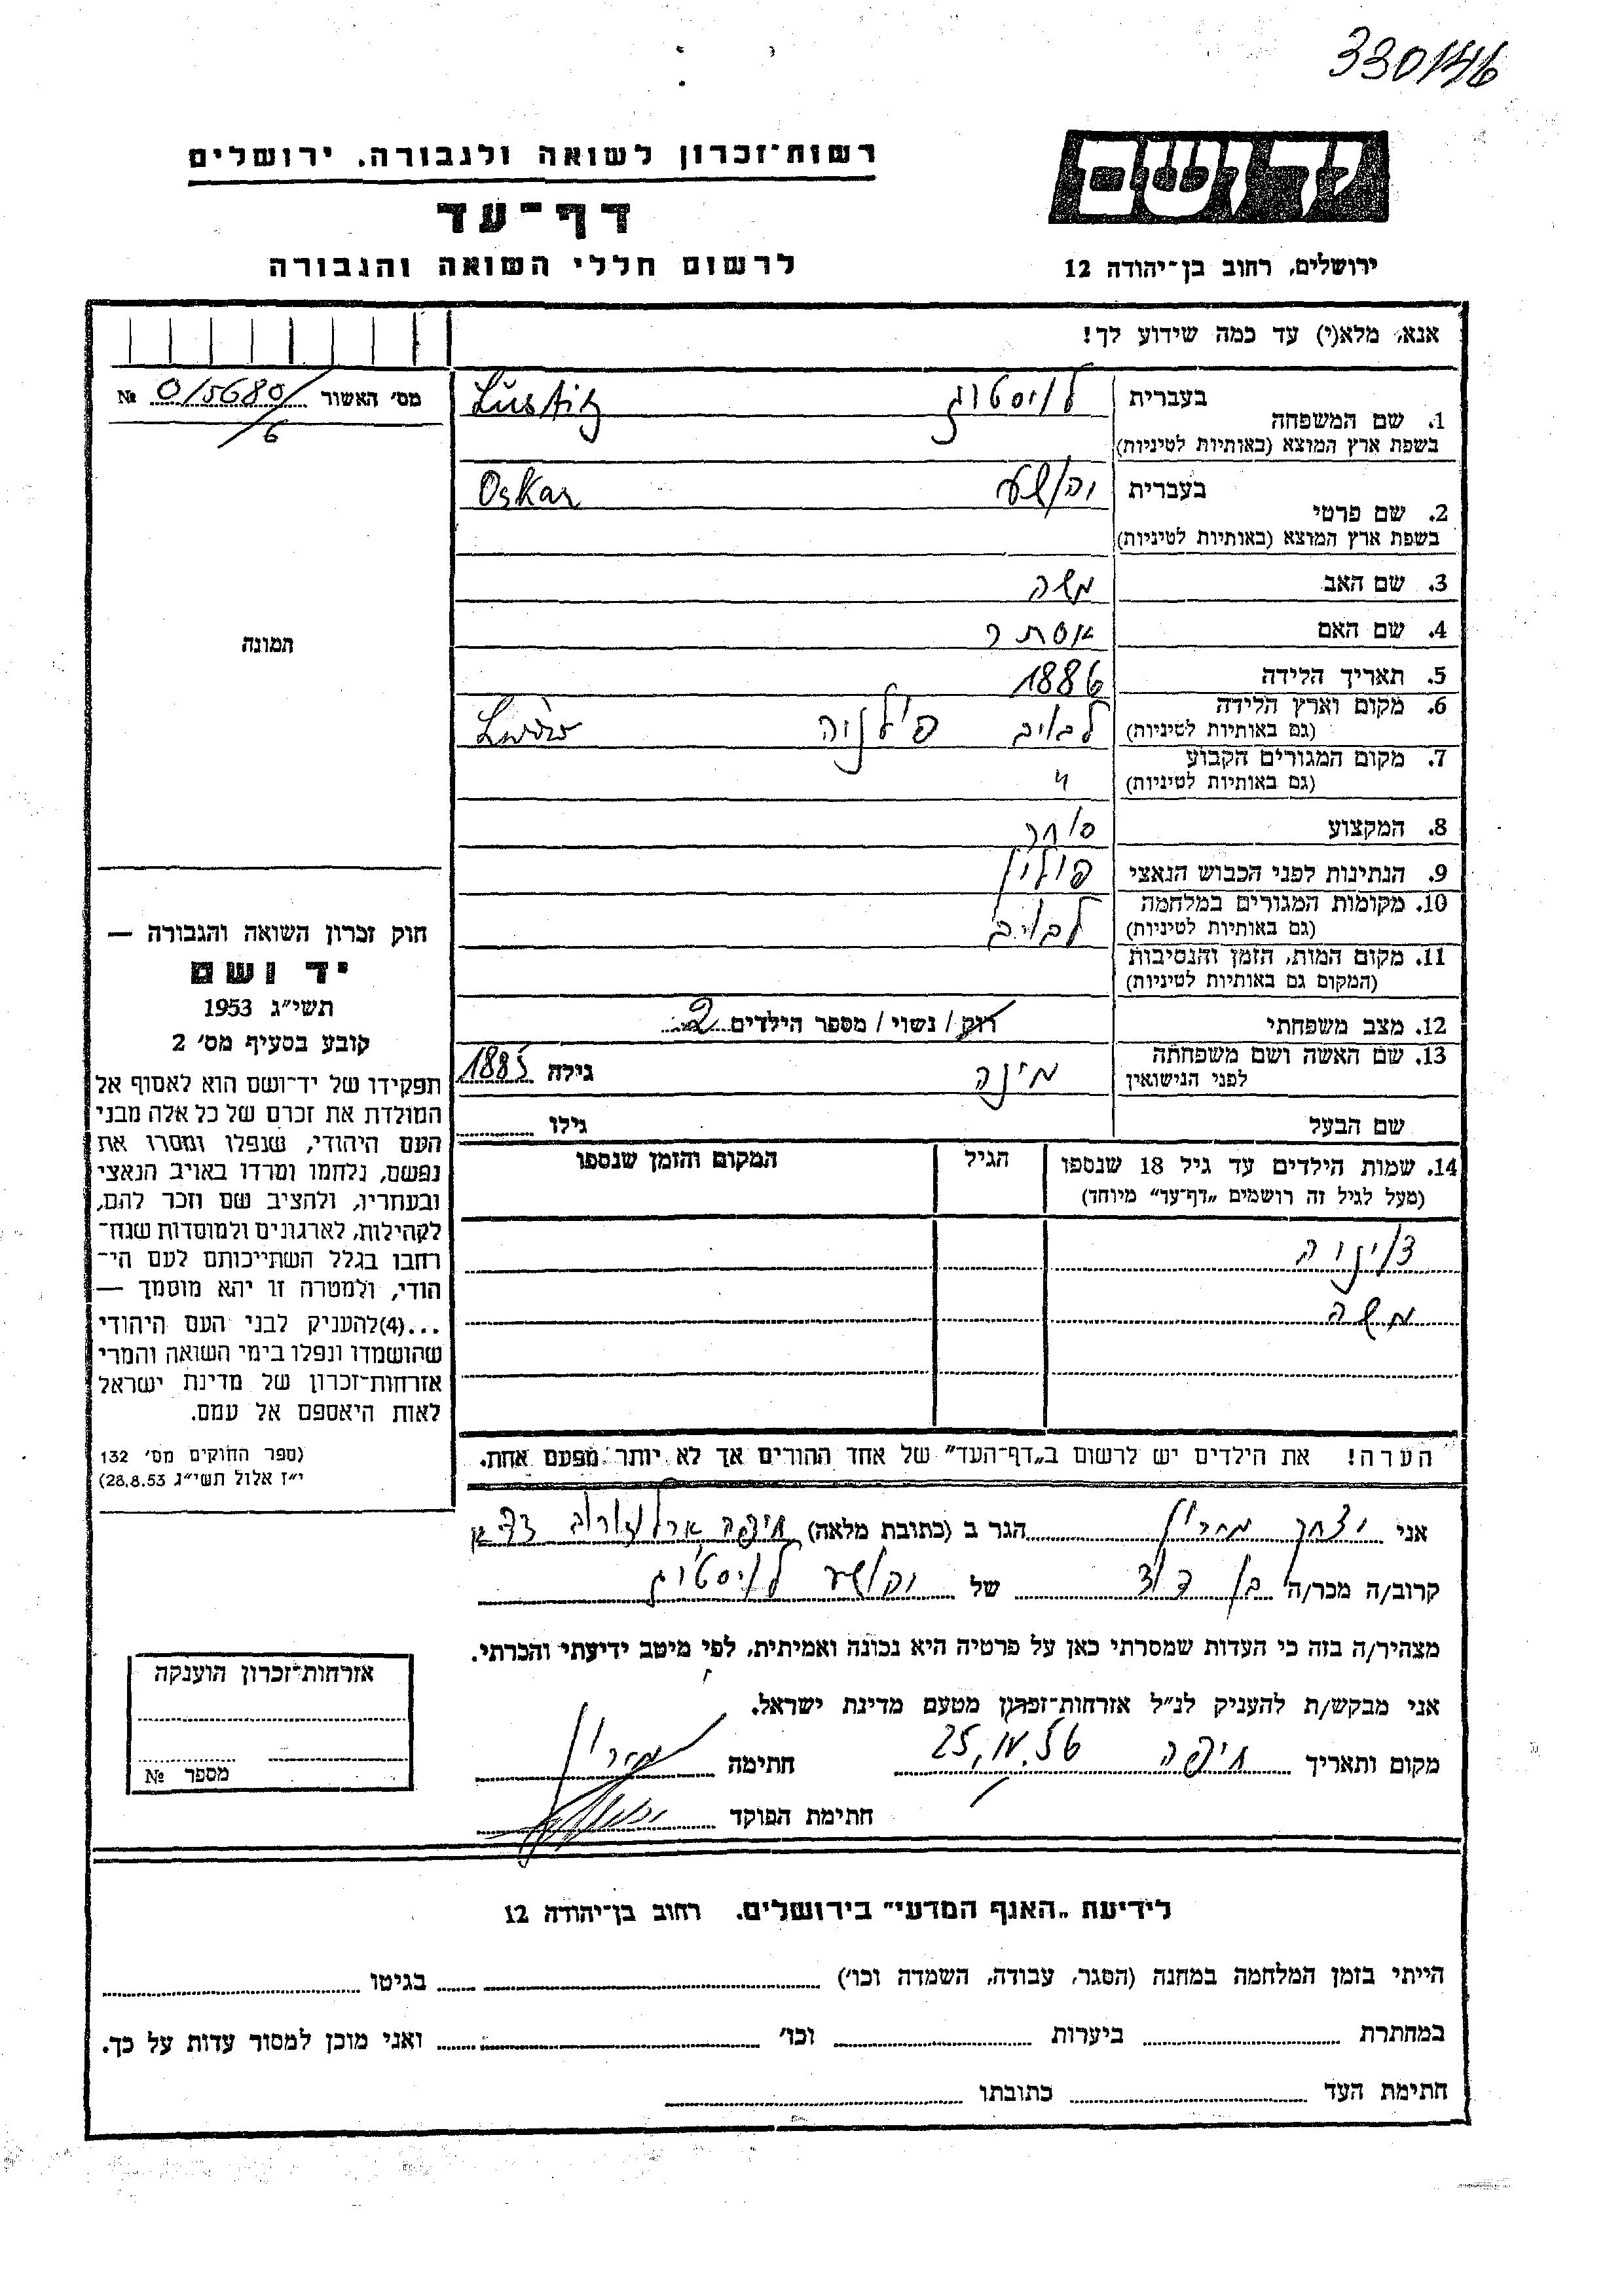 330146
רשות־זכרון לשואה ולגבורה, ירושלים
דף־עד
לרשום חללי השואה והגבורה
יד ושם
ירושלים, רחוב בן־יהודה 12
אנא, מלא(י) עד כמה שידוע לך!
מס׳ האשור 0/5680/6 №
תמונה
1. שם המשפחה בעברית לויסטיג Lustig
בשפת ארץ המוצא (באותיות לטיניות)
2. שם פרטי בעברית יהושע Oskar
בשפת ארץ המוצא (באותיות לטיניות)
3. שם האב משה
4. שם האם אסתר
5. תאריך הלידה 1886
6. מקום וארץ הלידה לבוב פולניה Lwów
(גם באותיות לטיניות)
7. מקום המגורים הקבוע "
(גם באותיות לטיניות)
8. המקצוע סוחר
9. הנתינות לפני הכבוש הנאצי פולין
10. מקומות המגורים במלחמה לבוב
(גם באותיות לטיניות)
11. מקום המות, הזמן והנסיבות
(המקום גם באותיות לטיניות)
12. מצב משפחתי רוק / נשוי / מספר הילדים 2
13. שם האשה ושם משפחתה מינה גילה 1885
לפני הנישואין
שם הבעל גילו
14. שמות הילדים עד גיל 18 שנספו הגיל המקום והזמן שנספו
(מעל לגיל זה רושמים „דף־עד” מיוחד)
משה
הערה! את הילדים יש לרשום ב„דף־העד” של אחד ההורים אך לא יותר מפעם אחת.
חוק זכרון השואה והגבורה —
יד ושם
תשי״ג 1953
קובע בסעיף מס׳ 2
תפקידו של יד־ושם הוא לאסוף אל
המולדת את זכרם של כל אלה מבני
העם היהודי, שנפלו ומסרו את
נפשם, נלחמו ומרדו באויב הנאצי
ובעוזריו, ולהציב שם וזכר להם,
לקהילות, לארגונים ולמוסדות שנח־
רבו בגלל השתייכותם לעם הי־
הודי, ולמטרה זו יהא מוסמך —
...(4)להעניק לבני העם היהודי
שהושמדו ונפלו בימי השואה והמרי
אזרחות־זכרון של מדינת ישראל
לאות היאספם אל עמם.
(ספר החוקים מס׳ 132
י״ז אלול תשי״ג 28.8.53)
אני יצחק הגר ב (כתובת מלאה) חיפה ארלוזורוב
קרוב/ה מכר/ה בן דוד של יהושע לויסטיג
מצהיר/ה בזה כי העדות שמסרתי כאן על פרטיה היא נכונה ואמיתית, לפי מיטב ידיעתי והכרתי.
אני מבקש/ת להעניק לנ״ל אזרחות־זכרון מטעם מדינת ישראל.
מקום ותאריך חיפה 25.IV.56 חתימה
חתימת הפוקד
אזרחות־זכרון הוענקה
מספר №
לידיעת „האגף המדעי” בירושלים, רחוב בן־יהודה 12
הייתי בזמן המלחמה במחנה (הסגר, עבודה, השמדה וכו׳) בגיטו
במחתרת ביערות וכו׳ ואני מוכן למסור עדות על כך.
חתימת העד כתובתו